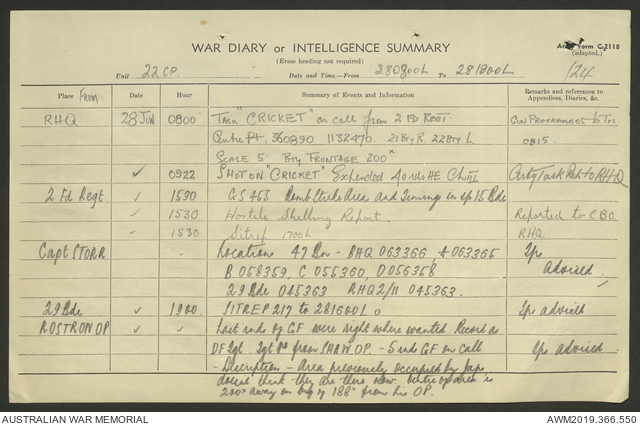 WAR DIARY or INTELLIGENCE SUMMARY
(Erase heading not required)
Army Form C.2118
(adapted.)
Unit 22 CP. Date and Time.—From 280800L To 281800L 124
Place From Date Hour Summary of Events and Information Remarks and references to Appendices, Diaries, &c.
RHQ 28 Jun 0800 Task "CRICKET" on call from 2 FD REGT. Gun Programmes to Tps
Centre Pt, 360890 1132470. 21 Bty R. 22 Bty L 0815.
SCALE 5. Bty FRONTAGE 200x
✓ 0922 SHOT ON "CRICKET" Expended 40 rds HE
2 Fd Regt ✓ 1530 GS 455 Bomb Strike Area and Timings in sp 15 Bde
✓ 1530 Hostile Shelling Report. Reported to CBO.
✓ 1530 Sitrep 1700L RHQ.
Capt STORR Location 47 Bn - RHQ 063366 A 063365 Tps
B 058359, C 055360, D 056358 Advised.
29 Bde 045363 RHQ 2/11 045363.
29 Bde ✓ 1900 SITREP 217 to 281600L Tps advised
ROSTRON OP ✓ ✓ Last rnd of GF were right where wanted. Record as
DF Tgt. from SHAW OP. - 5 rds GF on call Tps Advised
- Description - Area previously occupied by Jap
doesn't think they are there now. Centre of area is
200x away on brg of 188° from his OP.
AUSTRALIAN WAR MEMORIAL
AWM2019.366.550